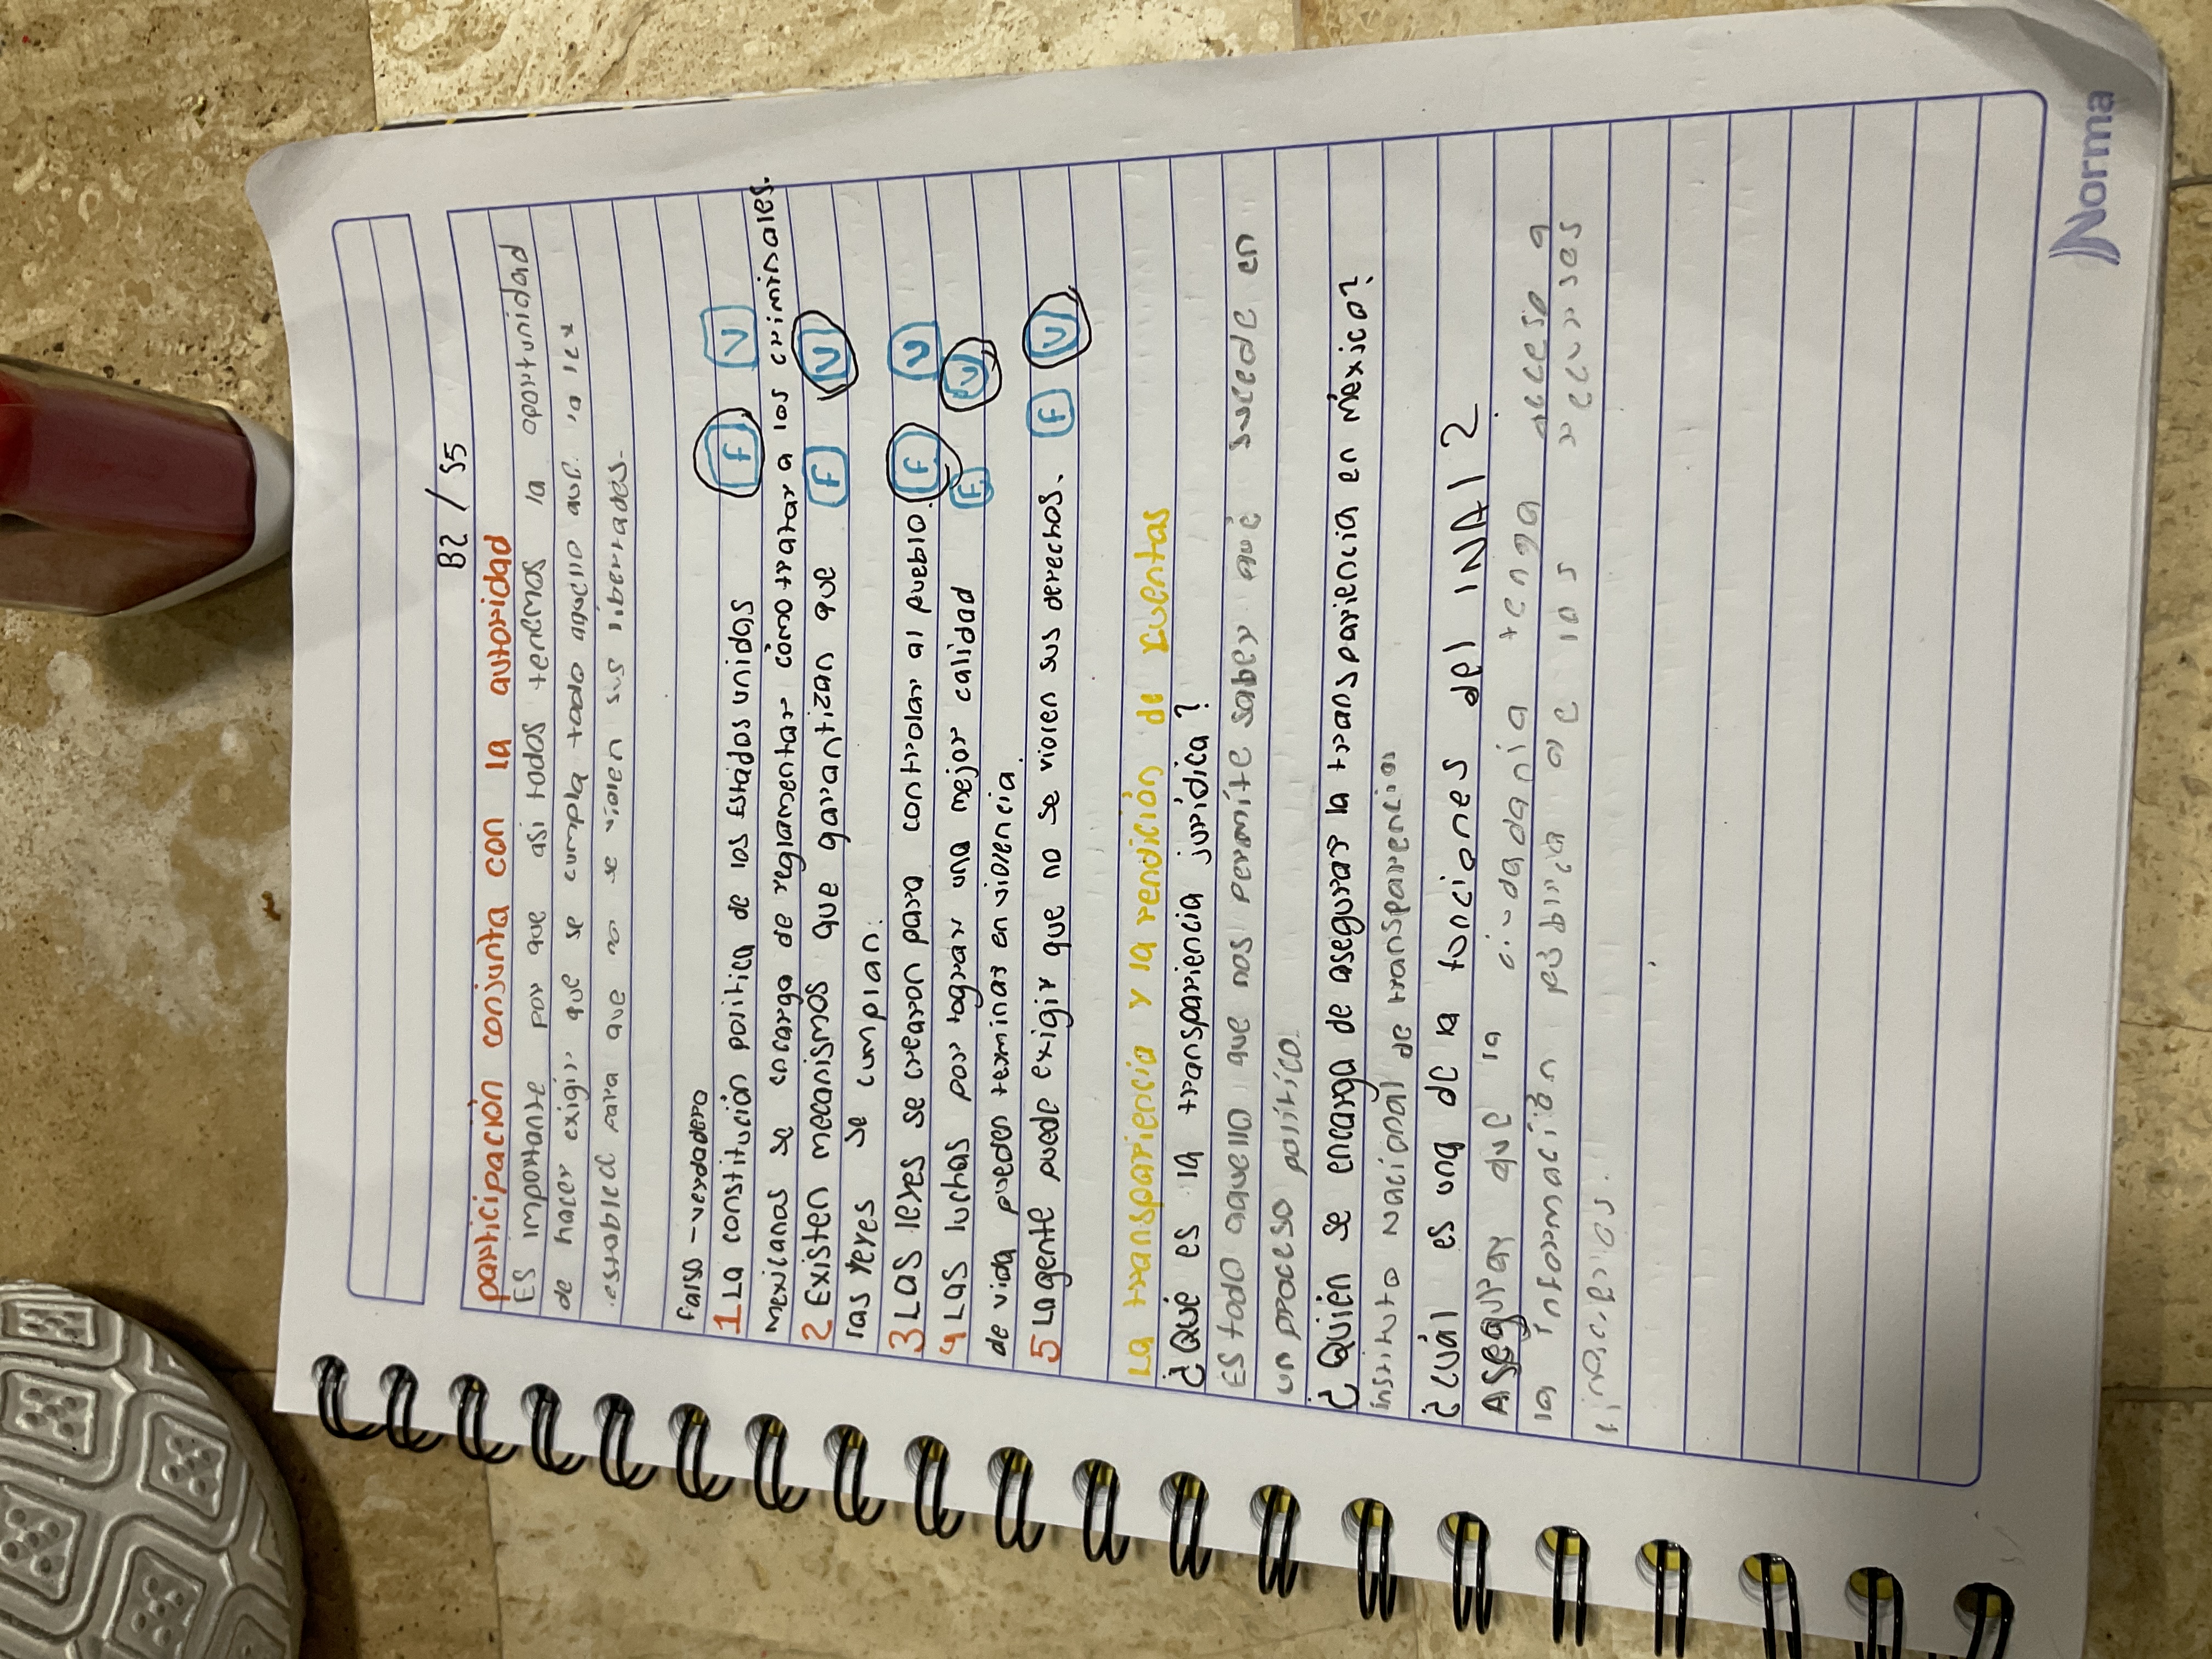 B2 / S5
participación conjunta con la autoridad
Es importante por que asi todos tenemos la oportunidad
de hacer exigir que se cumpla todo aquello que la ley
establece para que no se violen sus libertades.
Falso - verdadero
1 La constitución politica de los Estados unidas F V
mexicanas se encarga de reglamentar cómo tratar a los criminales.
2 Existen mecanismos que garantizan que F V
las leyes se cumplan.
3 Las leyes se crearon para controlar al pueblo. F V
4 Las luchas por lograr una mejor calidad F V
de vida pueden terminar en violencia.
5 La gente puede exigir que no se violen sus derechos. F V
La transpariencia y la rendición de cuentas
¿Qué es la transpariencia jurídica?
Es todo aquello que nos permite saber qué sucede en
un proceso político.
¿Quién se encarga de asegurar la transpariencia en méxico?
instituto nacional de transparencia
¿cuál es una de la funciones del INAI?
Asegurar que la ciudadania tenga acceso a
la información publica de los recursos
Norma